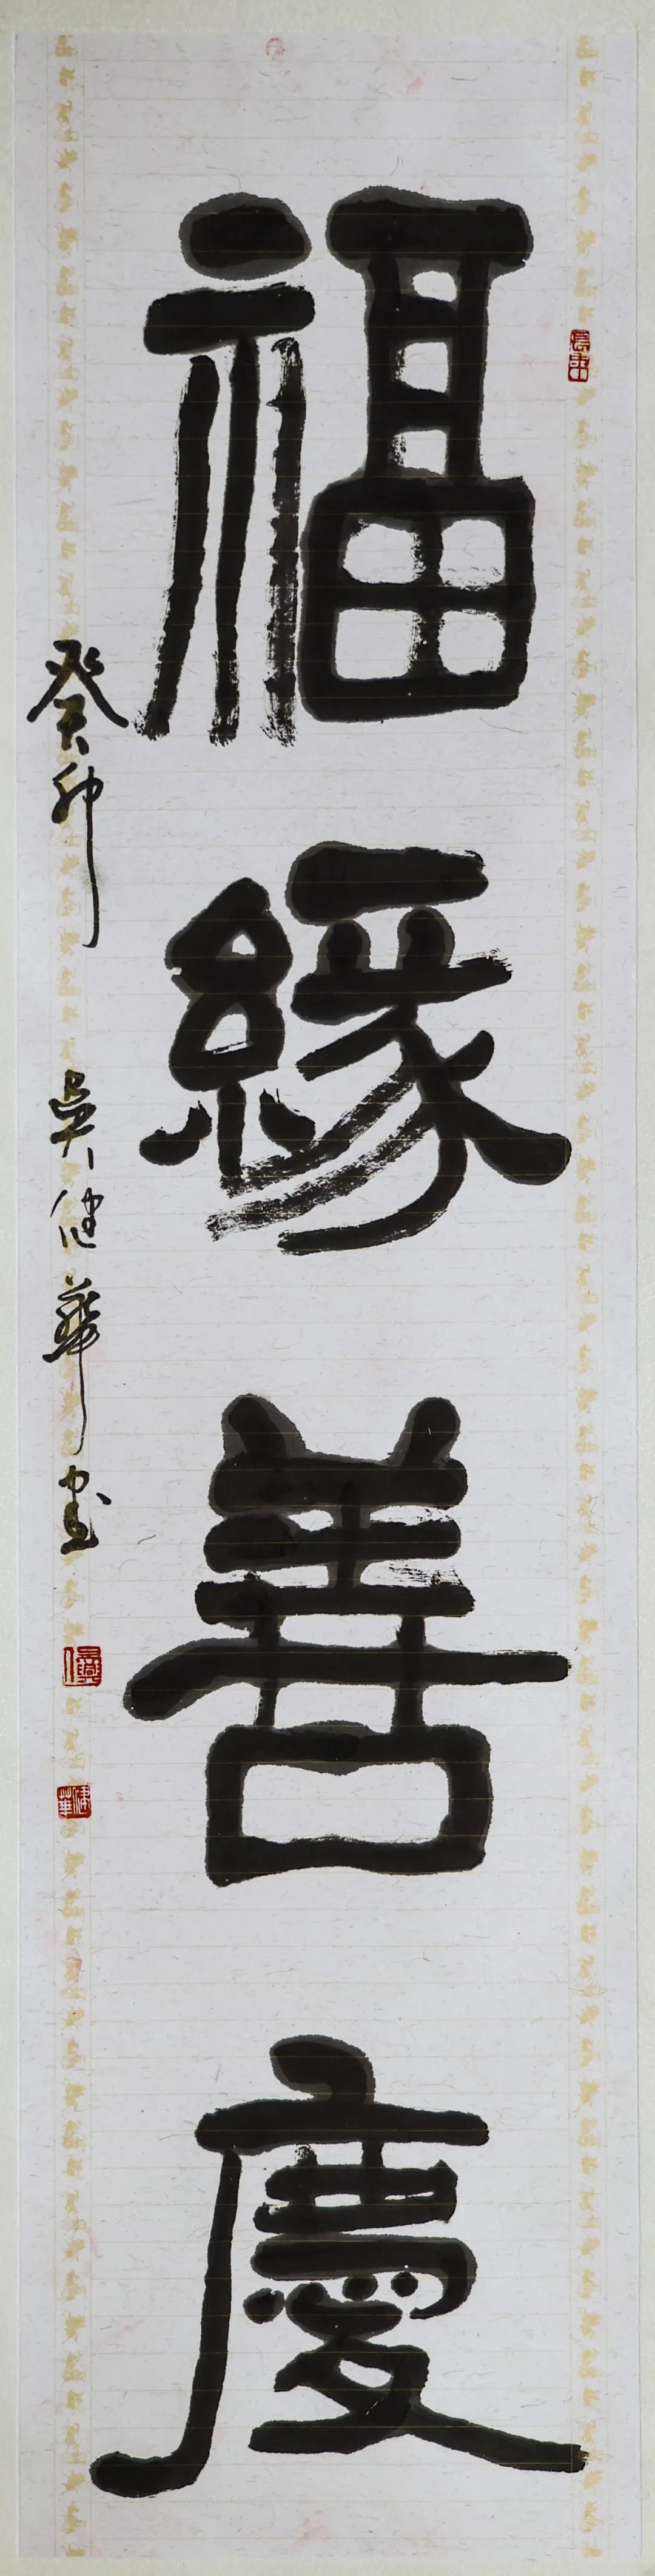 福緣善慶
癸卯 吳健華書